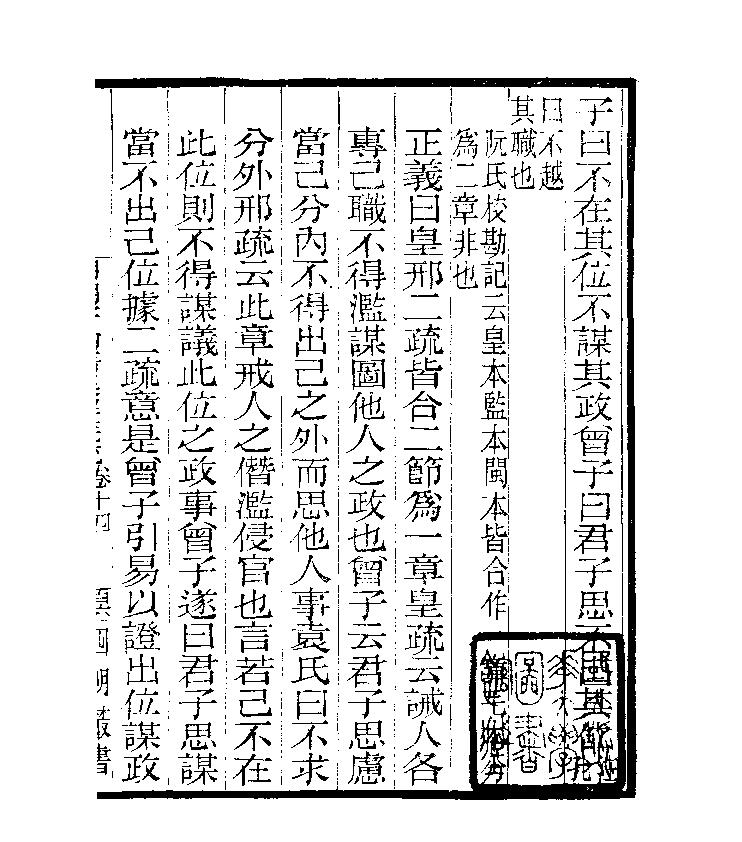 子曰不在其位不謀其政曾子曰君子思不出其位
曰不越
其職也
阮氏校勘記云皇本監本閩本皆合作
爲二章非也
正義曰皇邢二疏皆合二節爲一章皇疏云誡人各
專己職不得濫謀圖他人之政也曾子云君子思慮
當己分內不得出己之外而思他人事袁氏曰不求
分外邢疏云此章戒人之僭濫侵官也言若己不在
此位則不得謀議此位之政事曾子遂曰君子思謀
當不出己位據二疏意是曾子引易以證出位謀政
卷十四
四明叢書